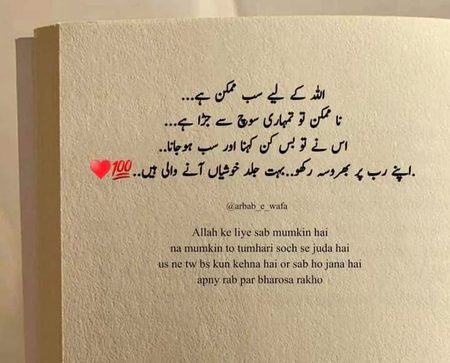 اللہ کے لیے سب ممکن ہے...
نا ممکن تو تمہاری سوچ سے جڑا ہے...
اس نے تو بس کن کہنا اور سب ہو جانا..
.اپنے رب پر بھروسہ رکھو..بہت جلد خوشیاں آنے والی ہیں..💯❤️
@arbab_e_wafa
Allah ke liye sab mumkin hai
na mumkin to tumhari soch se juda hai
us ne tw bs kun kehna hai or sab ho jana hai
apny rab par bharosa rakho